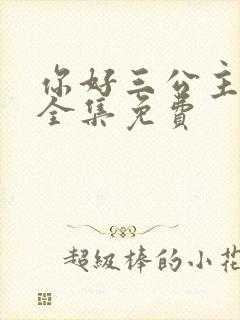 你好三公主
全集免费
超级棒的小花